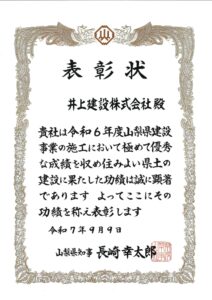 表彰状
井上建設株式会社 殿
貴社は令和6年度山梨県建設
事業の施工において極めて優秀
な成績を収め住みよい県土の
建設に果たした功績は誠に顕著
であります よってここにその
功績を称え表彰します
令和7年9月9日
山梨県知事 長崎幸太郎